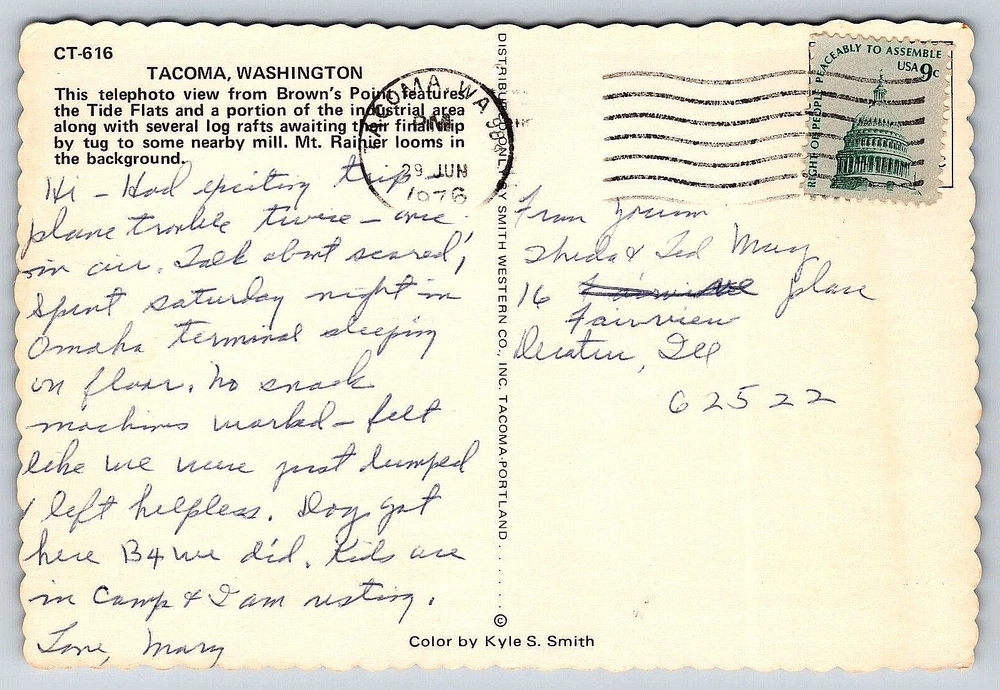 CT-616
TACOMA, WASHINGTON
This telephoto view from Brown's Point features
the Tide Flats and a portion of the industrial area
along with several log rafts awaiting their final trip
by tug to some nearby mill. Mt. Rainier looms in
the background.
Hi - Had exciting trip
plane trouble twice - one
in air. Talk about scared!
Spent saturday night in
Omaha terminal sleeping
on floor. No snack
machines worked - felt
like we were just dumped
& left helpless. Dog got
here B4 we did. Kids are
in Camp & I am resting.
Love, Mary
DISTRIBUTED ONLY BY SMITH WESTERN CO., INC. TACOMA-PORTLAND . . . . ©
Color by Kyle S. Smith
TACOMA, WA
PM
29 JUN
1976
RIGHT OF PEOPLE PEACEABLY TO ASSEMBLE
USA 9c
&
Ted
16 place
Fairview
Decatur, Ill
62522